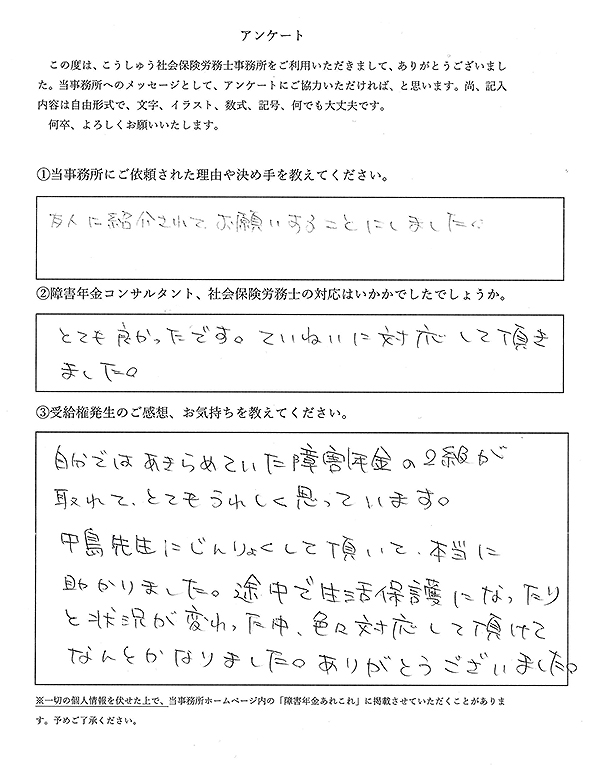 アンケート
この度は、こうしゅう社会保険労務士事務所をご利用いただきまして、ありがとうございまし
た。当事務所へのメッセージとして、アンケートにご協力いただければ、と思います。尚、記入
内容は自由形式で、文字、イラスト、数式、記号、何でも大丈夫です。
何卒、よろしくお願いいたします。
①当事務所にご依頼された理由や決め手を教えてください。
友人に紹介されて、お願いすることにしました。
②障害年金コンサルタント、社会保険労務士の対応はいかかでしたでしょうか。
とても良かったです。ていねいに対応して頂き
ました。
③受給権発生のご感想、お気持ちを教えてください。
自分ではあきらめていた障害年金の2級が
取れて、とてもうれしく思っています。
中島先生にじんりょくして頂いて、本当に
助かりました。途中で生活保護になったり
と状況が変わった中、色々対応して頂けて
なんとかなりました。ありがとうございました。
※一切の個人情報を伏せた上で、当事務所ホームページ内の「障害年金あれこれ」に掲載させていただくことがありま
す。予めご了承ください。